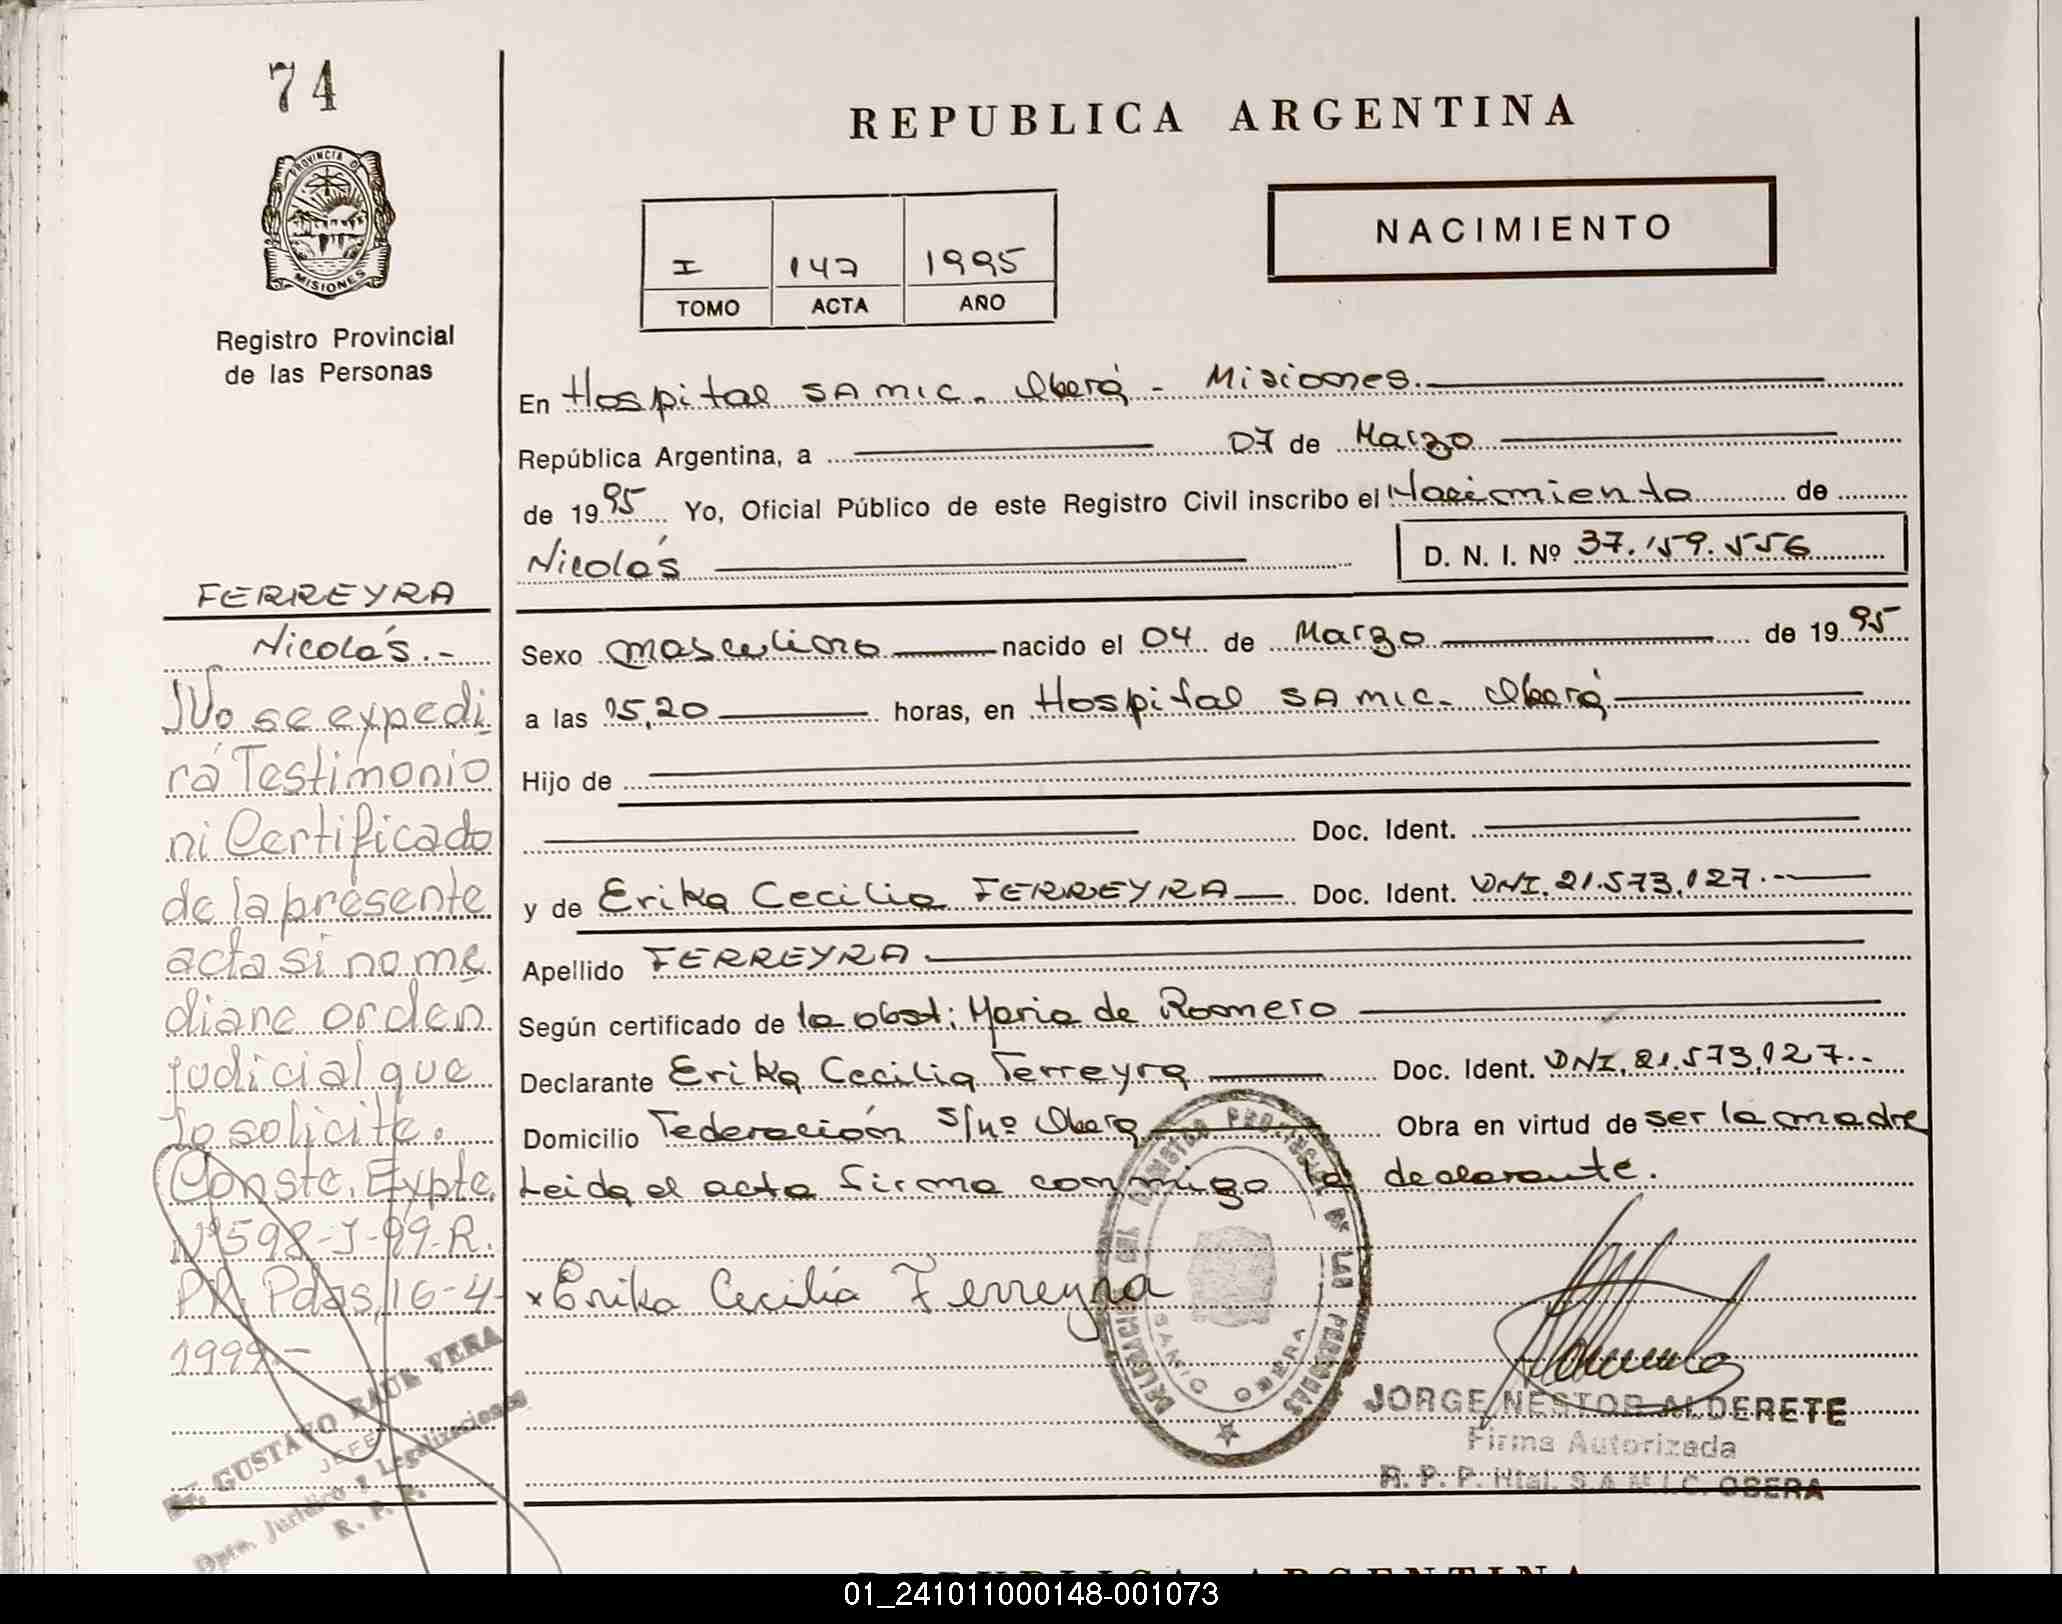 74
PROVINCIA DE
MISIONES
Registro Provincial
de las Personas
FERREYRA
Nicolás.-
No se expedi
rá Testimonio
ni Certificado
de la presente
acta si no me
diane orden
judicial que
lo solicite.
Conste. Expte.
Nº598-J-99-R.
Pdas, 16-4-
1999.-
Dr. GUSTAVO RAUL VERA
JEFE
Dpto. Jurídico y Legalizaciones
R. P. P.
REPUBLICA ARGENTINA
NACIMIENTO
I 147 1995
TOMO ACTA AÑO
En Hospital SAMIC. Oberá - Misiones.
República Argentina, a 07 de Marzo
de 1995 Yo, Oficial Público de este Registro Civil inscribo el Nacimiento de
Nicolás D. N. I. Nº 37.159.556
Sexo masculino nacido el 04 de Marzo de 1995
a las 15,20 horas, en Hospital SAMIC. Oberá
Hijo de
Doc. Ident.
y de Erika Cecilia FERREYRA Doc. Ident. DNI. 21.573.127.-
Apellido FERREYRA
Según certificado de la obst: Maria de Romero
Declarante Erika Cecilia Ferreyra Doc. Ident. DNI. 21.573.127.-
Domicilio Federación s/nº Oberá Obra en virtud de ser la madre
Leida el acta firma conmigo la declarante.
x Erika Cecilia Ferreyra
DELEGACION DEL REGISTRO PROVINCIAL DE LAS PERSONAS
SAMIC OBERA
JORGE NESTOR ALDERETE
Firma Autorizada
R. P. P. Htal. S.A.M.I.C. OBERA
REPUBLICA ARGENTINA
01_241011000148-001073